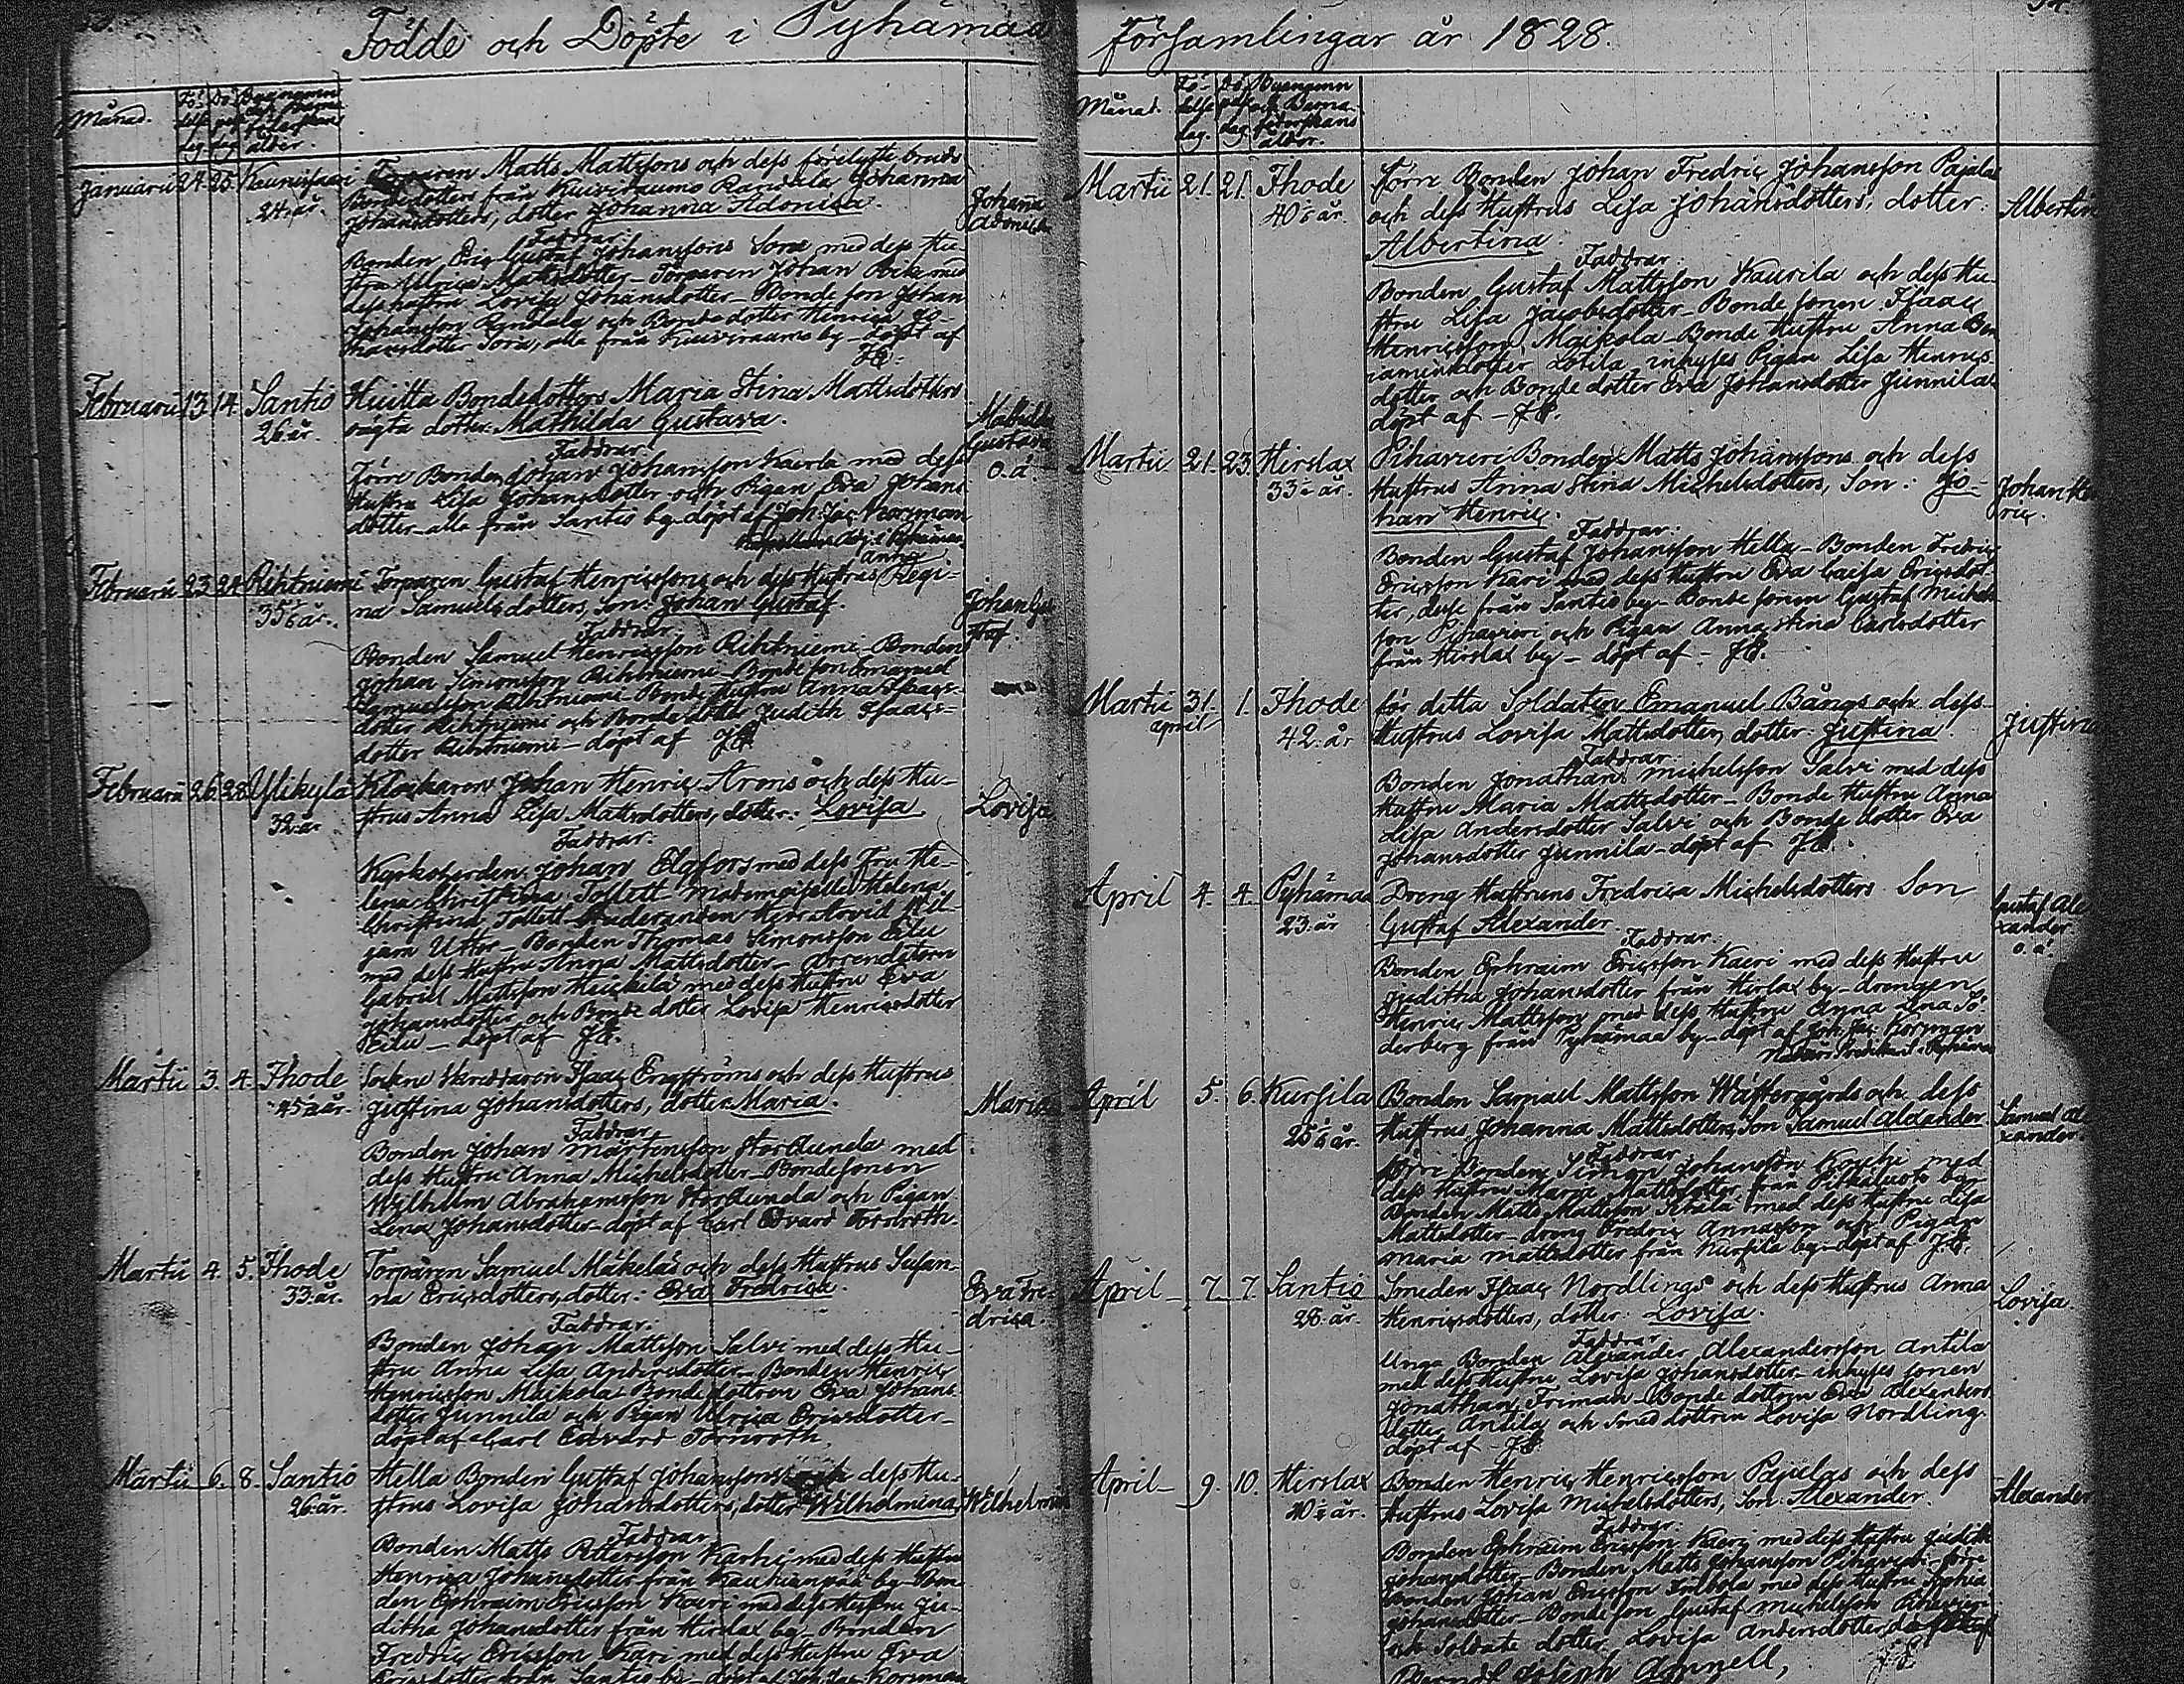 Födde och Döpte i Pyhämaa
Månad. Fö- Dö- Byanamn
delse pelse och Barna-
dag. dag. föderskans
ålder.
Januarii 24. 25. 24. år.
Torparen Matts Mattssons och dess
Johansdotters, dotter Johanna Adonica.
Johanna
Adonica
Faddrar.
Bonden Eric Gustaf Johanssons Sora med dess Hu-
stru Ulrica Mattsdotter – Torparen Johan med
dess hustru Lovisa Johansdotter – Bonde son Johan
Johansson och Bonde dotter Henrica Jo-
hansdotter Sora, alla från by – döpt af
Februarii 13. 14. Santio
26. år.
Huitta Bondedotters Maria Stina Mattsdotters
oägta dotter Mathilda Gustava.
Mathilda
Gustava
o.ä.
Faddrar.
Förre Bonden Johan Johansson med dess
Hustru Lisa Johansdotter och Pigan Eva Johans-
dotter alla från Santio by – döpt af Joh. Jac. Korsman
Februarii 23. 24. Rihtniemi
35 år.
Torparen Gustaf Henricssons och dess Hustrus Regi-
na Samuelsdotters, Son: Johan Gustaf.
Johan Gu-
staf.
Faddrar.
Bonden Samuel Henricsson Rihtniemi – Bonden
Johan Simonsson Rihtniemi – Bonde son Emanuel
Samuelsson Rihtniemi – Bonde Hustru Anna Isaacs-
dotter Rihtniemi och Bondedotter Judith Isaacs-
dotter Rihtniemi – döpt af
Februarii 26. 28. Ylikylä
32. år
Klockaren Johan Henric Arons och dess Hu-
strus Anna Lisa Mattsdotters, dotter: Lovisa
Lovisa
Faddrar.
Kyrkoherden Johan Elgfors med dess Fru He-
lena Christina Tollett – Mademoiselle Helena
Christina Tollett – Studeranden Herr Arvid
Uttor – Bonden Thomas Simonsson Eilu
med dess Hustru Anna Mattsdotter – Arrendatorn
Gabriel Mattsson Heickilä med dess Hustru Eva
Johansdotter och Bonde dotter Lovisa Henricsdotter
Eilu – döpt af
Martii 3. 4. Ihode
45 år.
Sockne Skräddaren Isaac Engströms och dess Hustrus
Justina Johansdotters, dotter Maria.
Maria
Faddrar
Bonden Johan Mårtensson Storaunela med
dess Hustru Anna Michelsdotter – Bondesonen
Wilhelm Abrahamsson Storaunela och Pigan
Lena Johansdotter – döpt af Carl Edvard Törnroth.
Martii 4. 5. Ihode
33. år.
Torparen Samuel Mäkeläs och dess Hustrus Susan-
na Ericsdotters, dotter: Eva Fredrica.
Eva Fre-
drica.
Faddrar.
Bonden Johan Mattsson Salvi med dess Hu-
stru Anna Lisa Andersdotter – Bonden Henric
Henricsson Maikola – Bondedottren Eva Johans-
dotter Junnila och Pigan Ulrica Ericsdotter –
döpt af Carl Edvard Törnroth
Martii 6. 8. Santio
26. år.
Hella Bonden Gustaf Johanssons och dess Hu-
strus Lovisa Johansdotters, dotter Wilhelmina
Wilhelmina
Faddrar.
Bonden Matts Pettersson Karhi med dess Hustru
Henrica Johansdotter från by – Bon-
den Ephraim Ericsson Kaeri med dess Hustru Ju-
ditha Johansdotter från Hirslax by – Bonden
Fredric Ericsson Kari med dess Hustru Eva
Ericsdotter från Santio by – döpt af Joh. Jac. Korsman
församlingar år 1828.
Månad. Fö- Dö- Byanamn
delse pelse och Barna-
dag. dag föderskans
ålder.
Martii 21. 21. Ihode
40 år.
Förre Bonden Johan Fredric Johansson Pajulas
och dess Hustrus Lisa Johansdotters, dotter:
Albertina.
Albertina
Faddrar.
Bonden Gustaf Mattsson Kaurila och dess Hu-
stru Lisa Jacobsdotter – Bonde sonen Isaac
Henricsson Maikola – Bonde Hustru Anna Ben-
jaminsdotter Lotila, inhyses Pigan Lisa Henrics-
dotter och Bonde dotter Eva Johansdotter Junnila
döpt af –
Martii 21. 23. Hirslax
33 år.
Pihaveri Bonden Matts Johanssons och dess
Hustrus Anna Stina Michelsdotters, Son: Jo-
han Henric.
Johan Hen-
ric.
Faddrar.
Bonden Gustaf Johansson Hella – Bonden Fredric
Ericsson Kari med dess Hustru Eva Caisa Ericsdot-
ter, desse från Santio by – Bonde sonen Gustaf Michels-
son Pihaveri och Pigan Anna Stina Carlsdotter
från Hirslax by – döpt af –
Martii 31. 1. Ihode
april
42. år
för detta Soldaten Emanuel Bångs och dess
Hustrus Lovisa Mattsdotters, dotter: Justina.
Justina
Faddrar.
Bonden Jonathan Michelsson Salvi med dess
Hustru Maria Mattsdotter – Bonde Hustru Anna
Lisa Andersdotter Salvi och Bonde dotter Eva
Johansdotter Junnila – döpt af
April 4. 4. Pyhämaa
23. år
Dreng Hustruns Fredrica Michelsdotters Son
Gustaf Alexander.
Gustaf Ale-
xander
o.ä.
Faddrar.
Bonden Ephraim Ericsson Kaeri med dess Hustru
Juditha Johansdotter från Hirslax by – drengen
Henric Mattsson med dess Hustru Anna Lena Sö-
derberg från Pyhämaa by – döpt af Joh. Jac. Korsman
April 5. 6. Kursila
25 år.
Bonden Samuel Mattsson Wästergårds och dess
Hustrus Johanna Mattsdotters, Son Samuel Alexander
Samuel Al-
exander.
Faddrar
Förre Bonden Simon Johansson med
dess Hustru Maria Mattsdotter, från by
Bonden Matts Mattsson med dess Hustru Lisa
Mattsdotter – dreng Fredric Annasson och Pigan
Maria Mattsdotter från Kursila by – döpt af
April 7. 7. Santio
28. år.
Smeden Isaac Nordlings och dess Hustrus Anna
Henricsdotters, dotter: Lovisa.
Lovisa
Faddrar
Unga Bonden Alexander Alexandersson Antila
med dess Hustru Lovisa Johansdotter – inhyses sonen
Jonathan Friman – Bonde dottren Eva Alexanders-
dotter Antila och Smed dottren Lovisa Nordling.
döpt af –
April 9. 10. Hirslax
40 år.
Bonden Henric Henricsson Pajulas och dess
Hustrus Lovisa Michelsdotters, Son: Alexander.
Alexander
Faddrar.
Bonden Ephraim Ericsson Kaeri med dess Hustru Judith
Johansdotter – Bonden Matts Johansson Pihaveri – förre
Bonden Johan Ericsson med dess Hustru Sophia
Johansdotter – Bondeson Gustaf Michelsson Pihaveri
och Soldate dotter Lovisa Andersdotter
Berndt Joseph Agnnell,